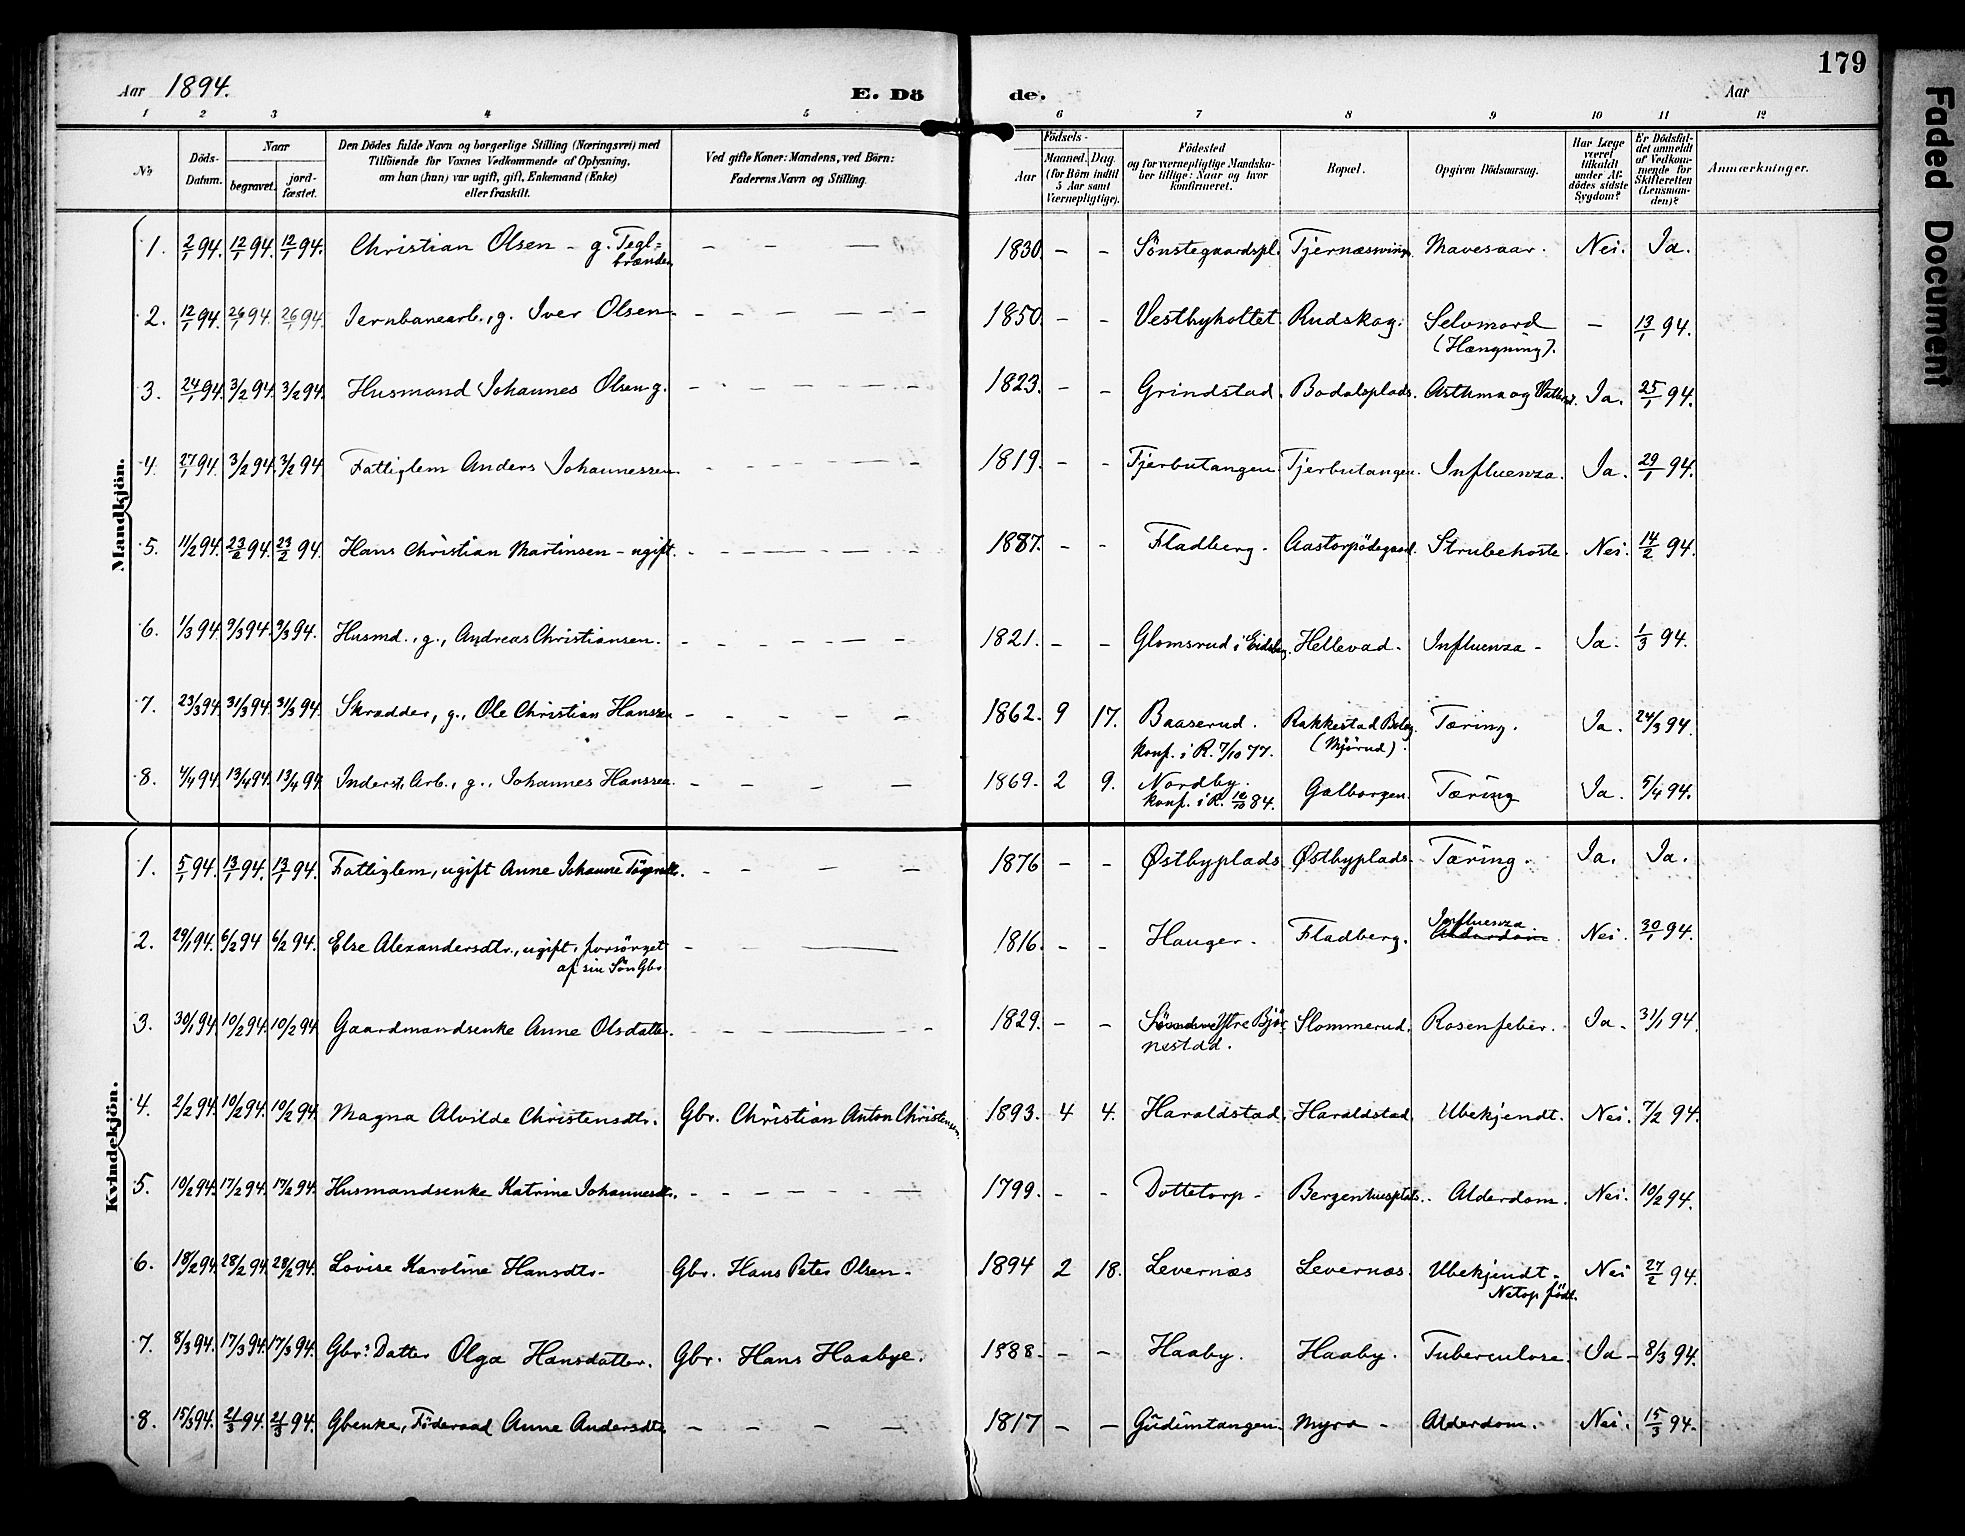 179
Aar 1894.
E. Dö de.
Aar
1 2 3 4 5 6 7 8 9 10 11 12
No
Döds-Datum.
Naar
begravet.
jord-fæstet.
Den Dödes fulde Navn og borgerlige Stilling (Næringsvei) med
Tilföiende for Voxnes Vedkommende af Oplysning,
om han (hun) var ugift, gift, Enkemand (Enke)
eller fraskilt.
Ved gifte Koner: Mandens, ved Börn:
Faderens Navn og Stilling.
Födsels-
Aar
Maaned. Dag.
(for Börn indtil
5 Aar samt
Værnepligtige).
Födested
og for værnepligtige Mandska-
ber tillige: Naar og hvor
konfirmeret.
Bopæl.
Opgiven Dödsaarsag.
Har Læge
været
tilkaldt
under Af-
dödes sidste
Sygdom?
Er Dödsfal-
det anmeldt
af Vedkom-
mende for
Skifteretten
(Lensman-
den)?
Anmærkninger.
Mandkjön.
1. 2/1 94. 12/1 94. 12/1 94. Christian Olsen - g. Tegl=
brænder
- - - 1830. - - Sönstegaardspl. Tjernæssvingen Mavesaar. Nei. Ja.
2. 12/1 94. 26/1 94. 26/1 94. Jernbanearb., g. Iver Olsen. - - - - - - 1850. - - Vestbyholtet. Rudskog. Selvmord - 13/1 94.
(Hængning).
3. 24/1 94. 3/2 94. 3/2 94. Husmand Johannes Olsen g. - - - - - - 1823. - - Grindstad. Bodalsplads. Asthma og Ja. 25/1 94.
4. 27/1 94. 3/2 94. 3/2 94. Fattiglem Anders Johannessen. - - - - - - 1819. - - Tjerbutangen. Tjerbutangen. Influenza. Ja. 29/1 94.
5. 11/2 94. 23/2 94. 23/2 94. Hans Christian Martinsen - ugift. - - - - - - 1887. - - Fladberg. Aastorpödegaard. Strubehoste. Nei. 14/2 94.
6. 1/3 94. 9/3 94. 9/3 94. Husmd., g., Andreas Christiansen. - - - - - - 1821. - - Glomsrud i Eidsberg. Hellevad. Influenza - Ja. 1/3 94.
7. 23/3 94. 31/3 94. 31/3 94. Skrædder, g., Ole Christian Hanssen - - - - 1862. 9 17. Baaserud. Rakkestad Tæring. Ja. 24/3 94.
konf. i R. 7/10 77. (Mjörud).
8. 4/4 94. 13/4 94. 13/4 94. Inderst, Arb., g., Johannes Hanssen. - - - - 1869. 2 9. Nordby. Galborgen. Tæring Ja. 5/4 94.
konf. i R. 84.
Kvindekjön.
1. 5/1 94. 13/1 94. 13/1 94. Fattiglem, ugift Anne Johanne - - - - 1876 - - Østbyplads Østbyplads. Tæring. Ja. Ja.
2. 29/1 94. 6/2 94 6/2 94. Else Alexandersdtr., ugift, forsörget
af sin Sön Gbr.
- - - 1816. - - Hauger. Fladberg. Influenza
Alderdom. Nei. 30/1 94.
3. 30/1 94. 10/2 94. 10/2 94. Gaardmandsenke Anne Olsdatter. - - - - 1829. - - Söndre Ytre Björ Slommerud. Rosenfeber. Ja - 31/1 94.
nestad.
4. 2/2 94. 10/2 94. 10/2 94. Magna Alvilde Christensdtr. Gbr. Christian Anton Christensen. 1893. 4 4. Haraldstad. Haraldstad. Ubekjendt. Nei. 7/2 94.
5. 10/2 94. 17/2 94. 17/2 94. Husmandsenke Katrine Johannesdtr. - - - - - - 1799. - - Dottetorp - Bergenhusplads. Alderdom. Nei. 10/2 94.
6. 18/2 94. 28/2 94. 28/2 94. Lovise Karoline Hansdtr. Gbr. Hans Peter Olsen. 1894 2 18. Levernæs Levernæs. Ubekjendt. Nei 27/2 94.
Netop födt.
7. 8/3 94. 17/3 94. 17/3 94. Gbr. Datter Olga Hansdatter. Gbr. Hans Haabye. 1888. - - Haaby. Haaby. Tuberculose. Ja - 8/3 94.
8. 15/3 94. 21/3 94. 21/3 94. Gbenke, Föderaad Anne Andersdtr. - - - - 1817 - - Gudimtangen. Myra - Alderdom. Nei. 15/3 94.
Faded Document